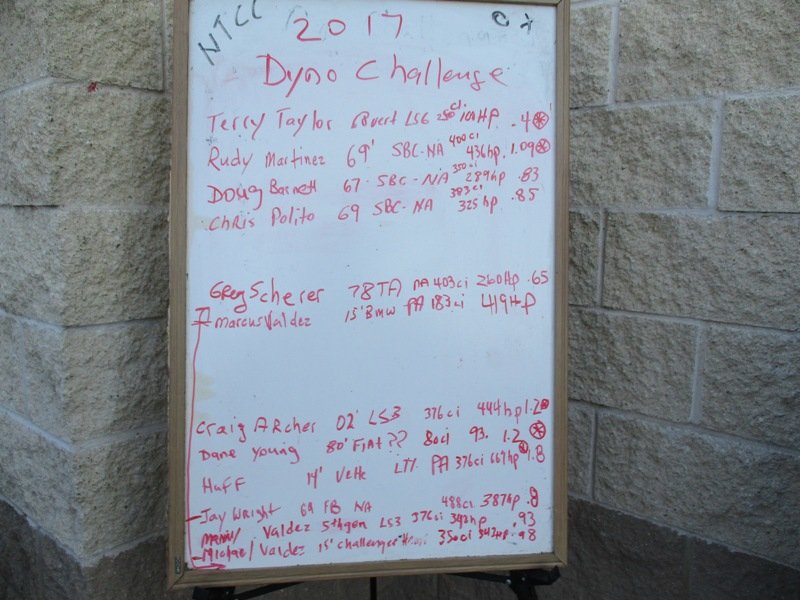 NTCC
2017
Dyno Challenge
Terry Taylor 68vert LS6 250ci 109HP .4
Rudy Martinez 69' SBC-NA 400ci 436hp. 1.09
Doug Barnett 67. SBC-N/A 350ci 289hp .83
CHRIS Polito 69 SBC-NA 383ci 325hp .85
Greg Scherer 78TA NA 403ci 260Hp .65
Marcus Valdez 15'Bmw PA 183ci 419Hp
Craig ARcher 02' LS3 376ci 444hp 1.2
Dane Young 80' FIAt ?? 80ci 93. 1.2
HuFF 14' Vette LT1. PA 376ci 667hp 1.8
Jay Wright 69 FB NA 488ci 387hp .8
Valdez 5thgen LS3 376ci 342hp .93
Michael Valdez 15' challenger 350ci 342HP .98